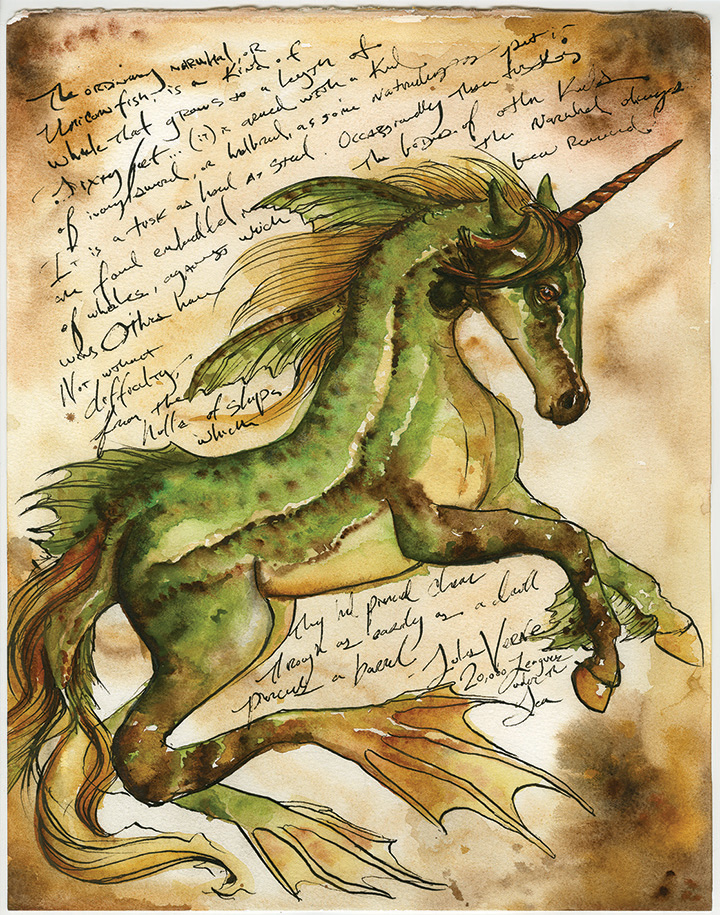 The ordinary narwhal, or
Unicornfish, is a kind of
whale that grows to a length of
sixty feet... (it) is armed with a kind
of ivory sword, or halberd, as some naturalists put it.
It is a tusk as hard as steel. Occassionally these tusks
are found embedded in the bodies of other kinds
of whales, against which the narwhal always
wins Others have been removed
Not without
difficulty,
from the
hulls of ships
which
they had pierced clean
through as easily as a drill
pierces a barrel
Jules Verne
20,000 Leagues
Under the
Sea